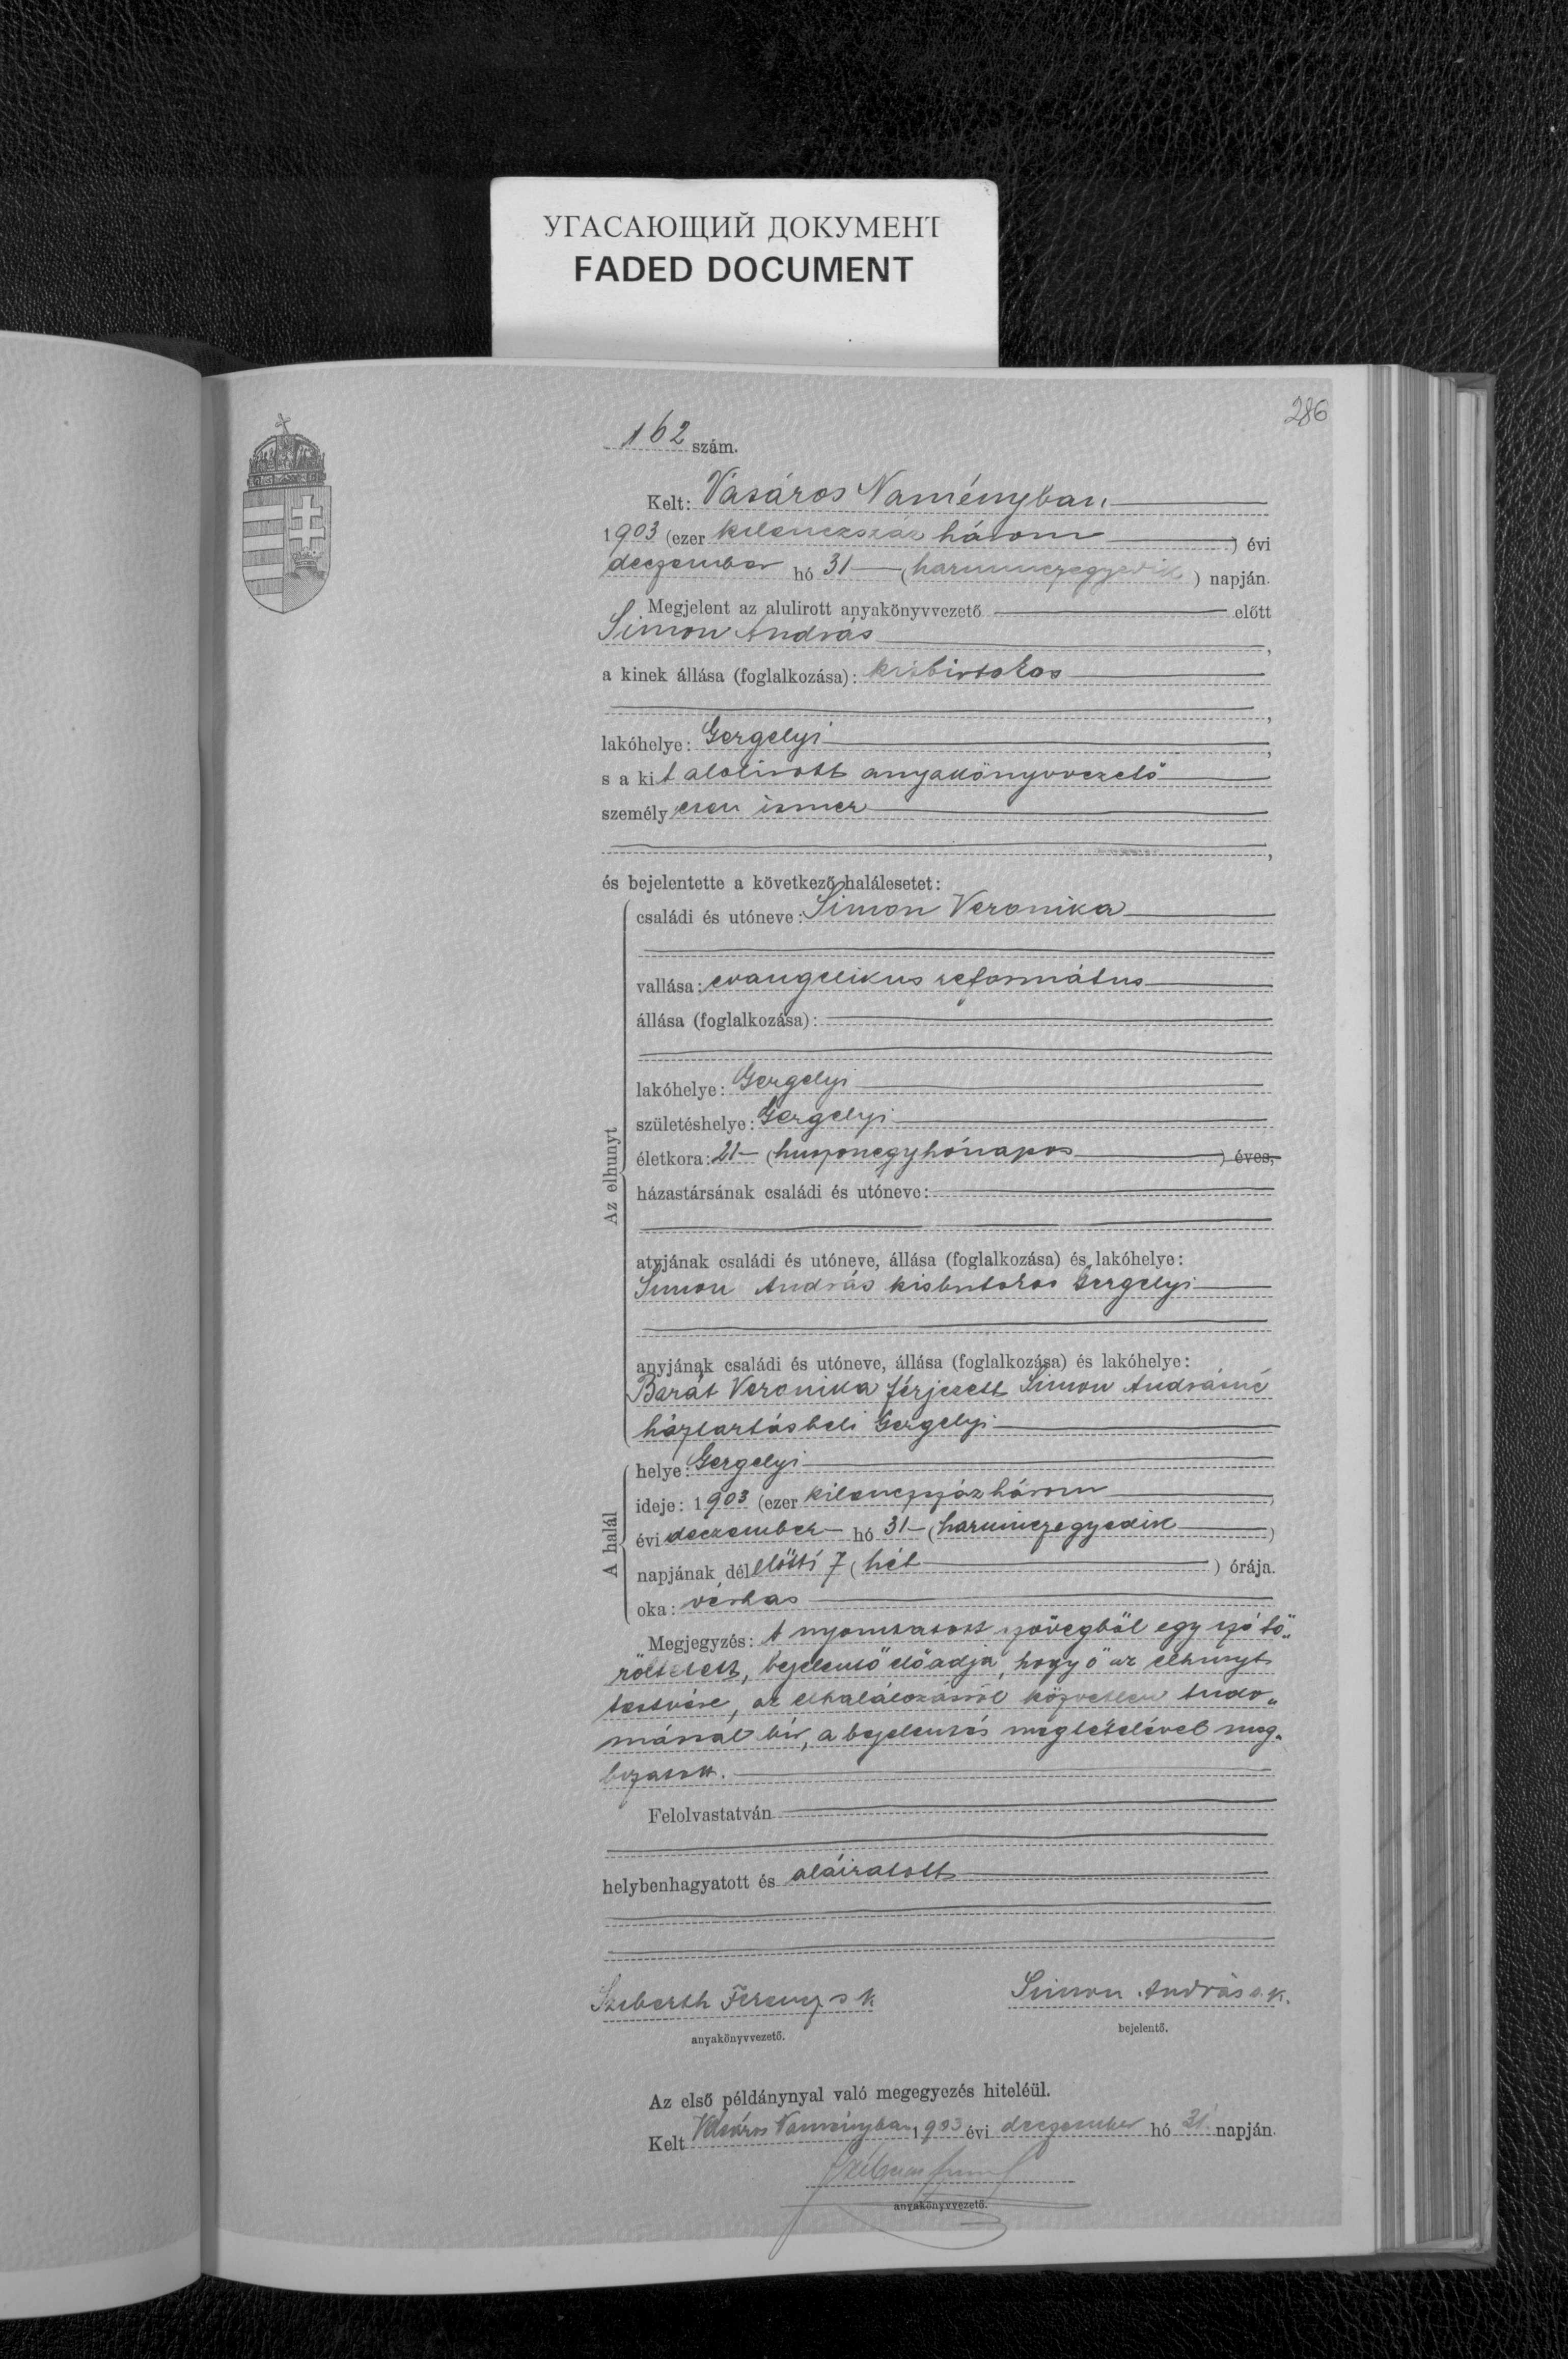 УГАСАЮЩИЙ ДОКУМЕНТ
FADED DOCUMENT
286
162 szám.
Kelt: Vásáros Naményban
1903 (ezer kilenczszáz három ) évi
deczember hó 31 (harminczegyedik) napján.
Megjelent az alulirott anyakönyvvezető előtt
Simon András,
a kinek állása (foglalkozása): kisbirtokos
,
lakóhelye: Gergelyi,
s a kit alolirott anyakönyvvezető
személyesen ismer
,
és bejelentette a következő halálesetet:
családi és utóneve: Simon Veronika
vallása: evangelikus református
állása (foglalkozása):
lakóhelye: Gergelyi
születéshelye: Gergelyi
Az elhunyt
életkora: 21 (huszonegyhónapos ) éves,
házastársának családi és utóneve:
atyjának családi és utóneve, állása (foglalkozása) és lakóhelye:
Simon András kisbirtokos Gergelyi
anyjának családi és utóneve, állása (foglalkozása) és lakóhelye:
Barát Veronika férjezett Simon Andrásné
háztartásbeli Gergelyi
helye: Gergelyi
ideje: 1903 (ezer kilenczszázhárom )
A halál
évi deczember hó 31 (harminczegyedik )
napjának délelőtti 7 (hét ) órája.
oka: vérhas
Megjegyzés: A nyomtatott szövegből egy szó tö„
röltetett, bejelentő előadja, hogy ő az elhunyt
testvére, az elhalálozásról közvetlen tudo„
mással bir, a bejelentés megtételével meg„
bizatott.
Felolvastatván
helybenhagyatott és aláiratott
Ferencz s k
anyakönyvvezető.
Simon András s. k.
bejelentő.
Az első példánynyal való megegyezés hiteléül.
Kelt Vásáros Naményban 1903 évi deczember hó 31 napján.
anyakönyvvezető.